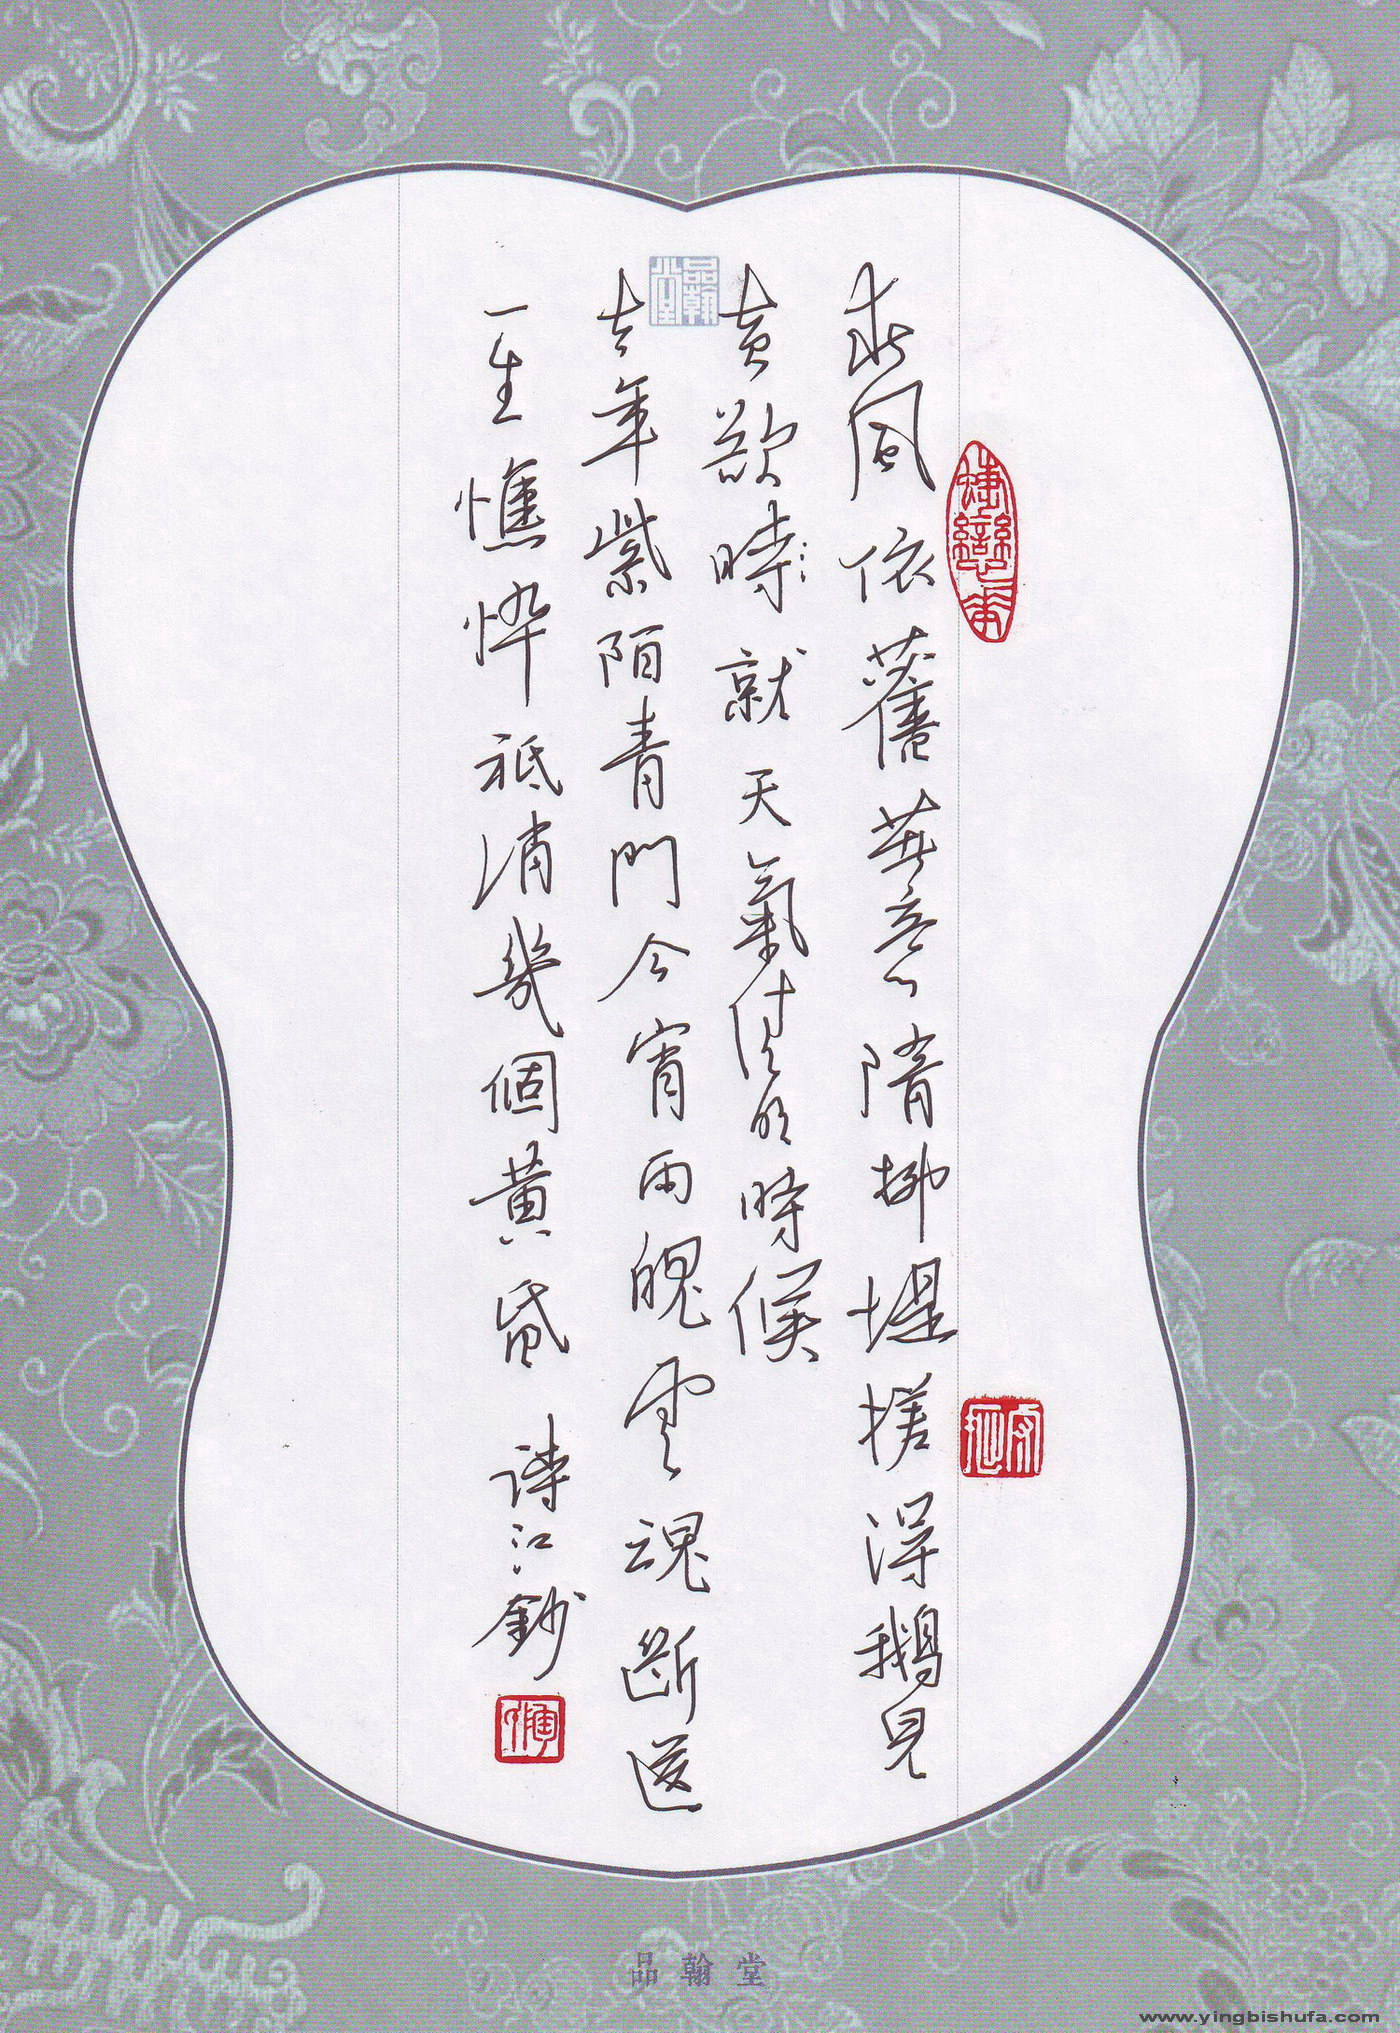 東風依舊著意隋柳堤搓得鵝兒
黃欲時就天氣清明時候
去年紫陌青門今宵雨魄雲魂斷送
一生憔悴祗消幾個黃昏 詩江鈔
品翰堂
品翰堂
www.yingbishufa.com